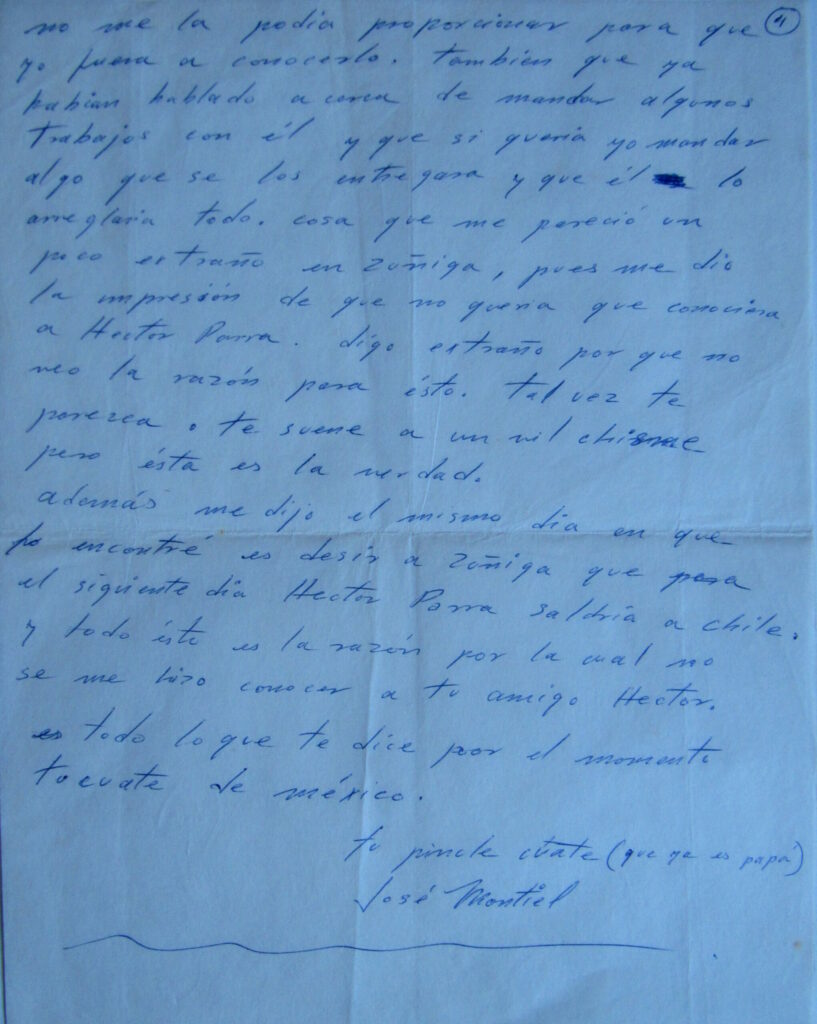 no me la podia proporcionar para que 4
yo fuera a conocerlo. tambien que ya
habian hablado a cerca de mandar algunos
trabajos con él y que si queria yo mandar
algo que se los entregara y que él lo
arreglaria todo. cosa que me pareció un
poco extraño en Zúñiga, pues me dio
la impresión de que no queria que conociera
a Hector Parra. digo extraño por que no
veo la razón para ésto. tal vez te
parezca o te suene a un vil chisme
pero ésta es la verdad.
además me dijo el mismo dia en que
lo encontré es desir a Zuñiga que para
el siguiente dia Hector Parra saldria a chile.
y todo ésto es la razón por la cual no
se me hizo conocer a tu amigo Hector.
es todo lo que te dice por el momento
tu cuate de méxico.
tu pinche cuate (que ya es papá)
José Montiel